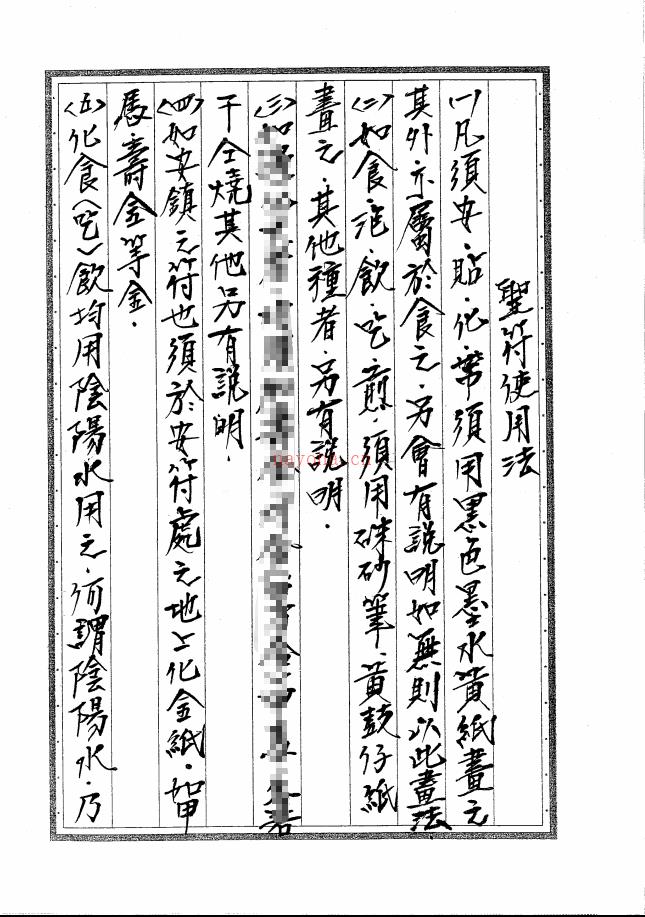 聖符使用法
㈠凡須安．貼．化．帶須用黑色墨水黃紙畫之
其外亦屬於食之．另會有說明如無則以此畫法．
〈二〉如食．泡．飲．吃．煎．須用硃砂筆．黃鼓仔紙
畫之．其他種者．另有說明．
〈三〉如
干仝燒其他另有說明．
〈四〉如安鎮之符也須於安符處之地上化金紙．如甲
馬．壽金等金．
〈五〉化食〈吃〉飲均用陰陽水用之．何謂陰陽水．乃